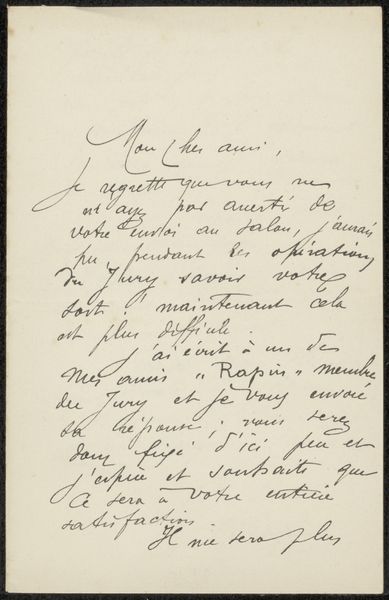 Mon cher ami,
Je regrette que vous ne
m'ayez pas averti de
votre envoi au salon, j'aurais
pu, pendant les opérations
du Jury savoir votre
sort ! maintenant cela
est plus difficile.
J'ai écrit à un de
mes amis „Rapin" membre
du Jury et je vous envoie
sa réponse ; vous serez
donc fixé d'ici peu et
j'espère et souhaite que
ce sera à votre entière
satisfaction.
Il me sera plus